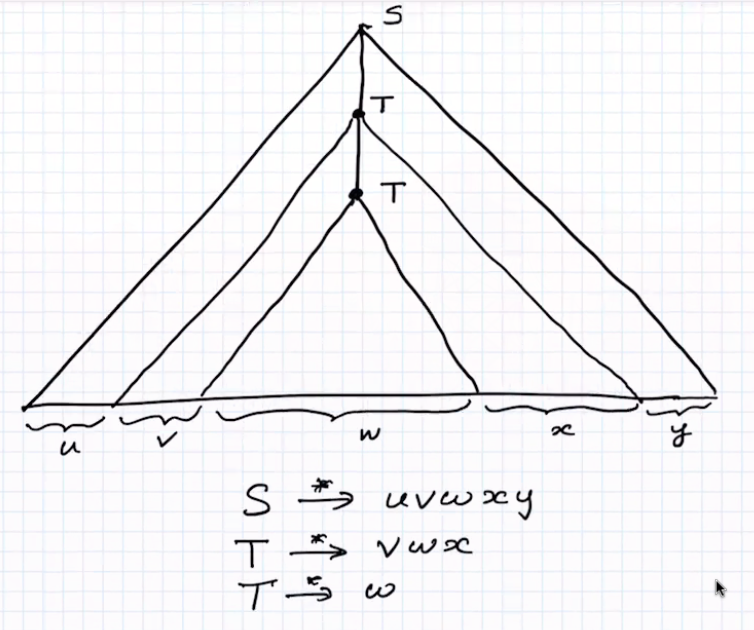 S
T
T
u v w x y
S *→ uvwxy
T *→ vwx
T *→ w